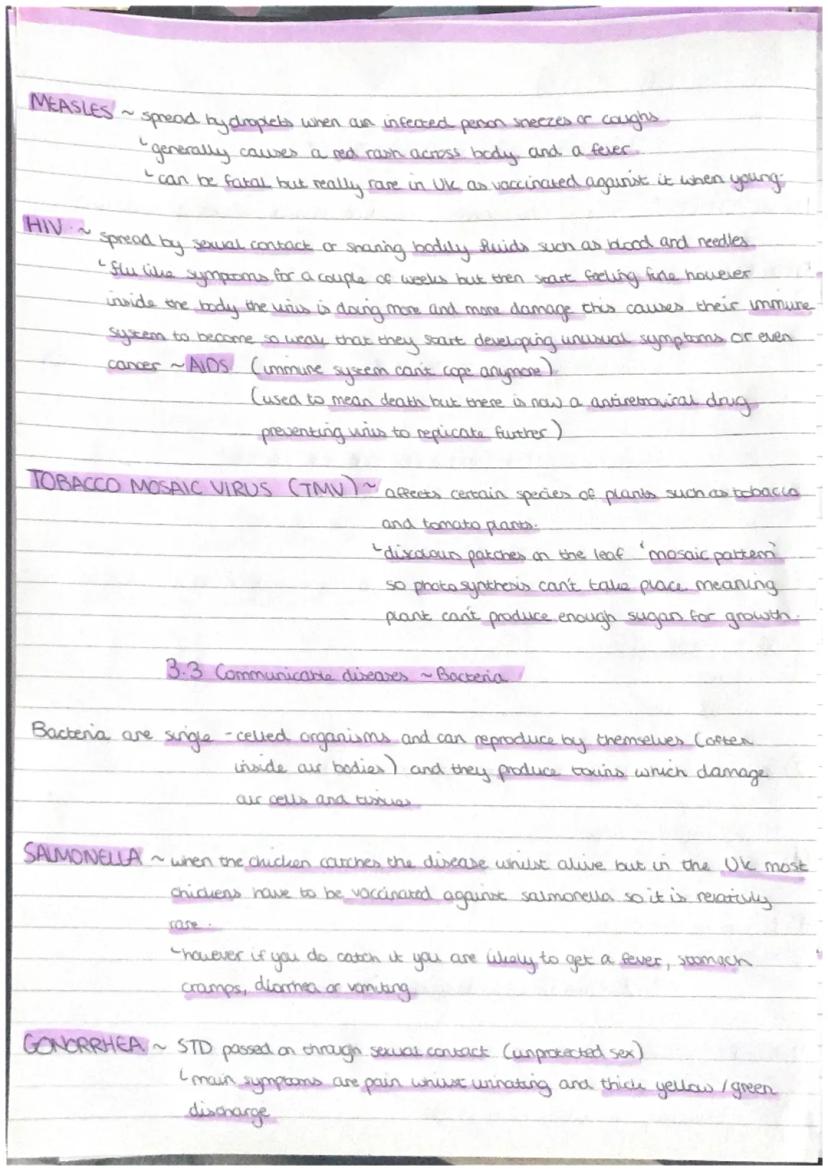 MEASLES ~ spread by droplets when an infected person sneezes or coughs
↳ generally causes a red rash across body and a fever.
↳ can be fatal but really rare in UK as vaccinated against it when young.
HIV ~ spread by sexual contact or sharing bodily fluids such as blood and needles
↳ flu like symptoms for a couple of weeks but then start feeling fine however
inside the body the virus is doing more and more damage this causes their immune
system to become so weak that they start developing unusual symptoms or even
cancer ~ AIDS (immune system can't cope anymore)
(used to mean death but there is now a antiretroviral drug
preventing virus to replicate further)
TOBACCO MOSAIC VIRUS (TMV) ~ affects certain species of plants such as tobacco
and tomato plants.
↳ discolour patches on the leaf 'mosaic pattern'
so photosynthesis can't take place meaning
plant can't produce enough sugars for growth.
3.3 Communicable diseases ~ Bacteria
Bacteria are single-celled organisms and can reproduce by themselves (often
inside our bodies) and they produce toxins which damage
our cells and tissues
SALMONELLA ~ when the chicken catches the disease whilst alive but in the UK most
chickens have to be vaccinated against salmonella so it is relatively
rare.
↳ however if you do catch it you are likely to get a fever, stomach
cramps, diarrhea or vomiting
GONORRHEA ~ STD passed on through sexual contact (unprotected sex)
↳ main symptoms are pain whilst urinating and thick yellow/green
discharge